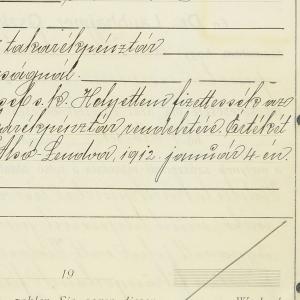 takarékpénztár
ságnál.
s. k. Helyettem fizettessék az
arékpénztár rendeletére. Értékét
Alsó-Lendva, 1912. január 4-én.
19